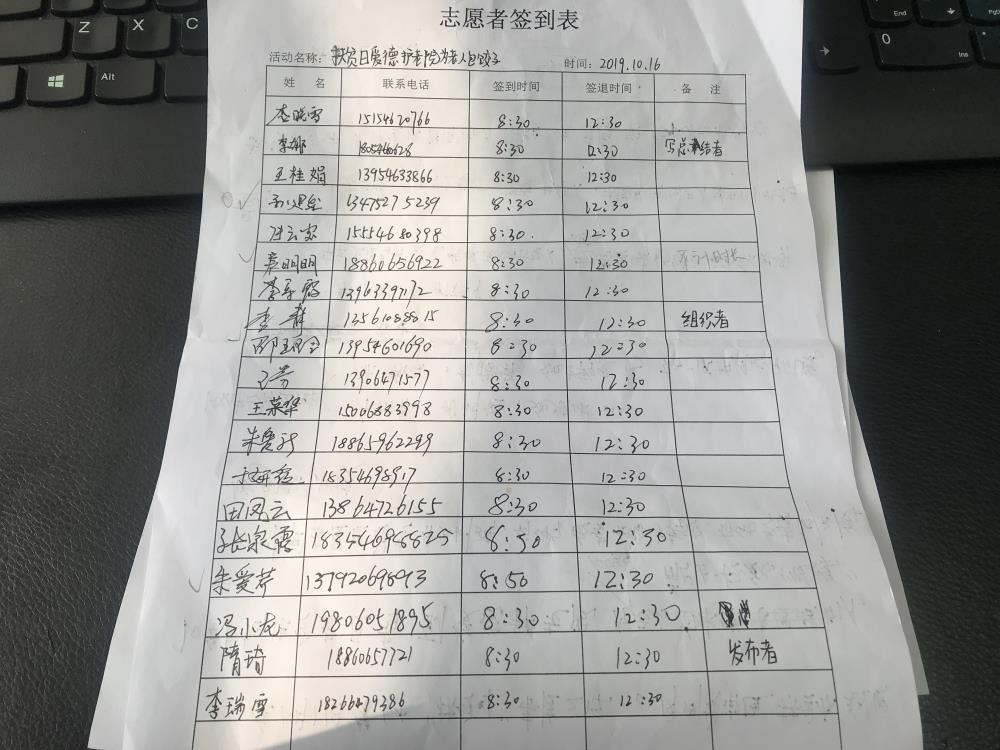 志愿者签到表
活动名称：扶贫日爱德护老院为老人包饺子 时间：2019.10.16
姓 名 联系电话 签到时间 签退时间 备 注
李晓雪 15154620766 8:30 12:30
李娜 8:30 12:30 写总结者
王桂娟 13954633866 8:30 12:30
13475275239 8:30 12:30
15554680398 8:30 12:30
袁明明 18860656922 8:30 12:30
李乐霞 13963397172 8:30 12:30
李静 13561088815 8:30 12:30 组织者
13954601690 8:30 12:30
王芳 13906471577 8:30 12:30
王荣华 15006883998 8:30 12:30
18865962299 8:30 12:30
18354698917 8:30 12:30
田凤云 13864726155 8:30 12:30
张泉霞 18354698825 8:50 12:30
朱爱芹 13792069893 8:50 12:30
冯小龙 19806051895 8:30 12:30
隋琦 18860657721 8:30 12:30 发布者
李瑞雪 18266479386 8:30 12:30
Z
X
C
Alt
End
PgDn
0
Ins